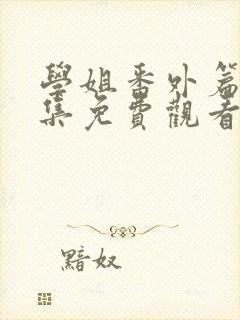 學姐番外篇
集免費觀看
黯奴